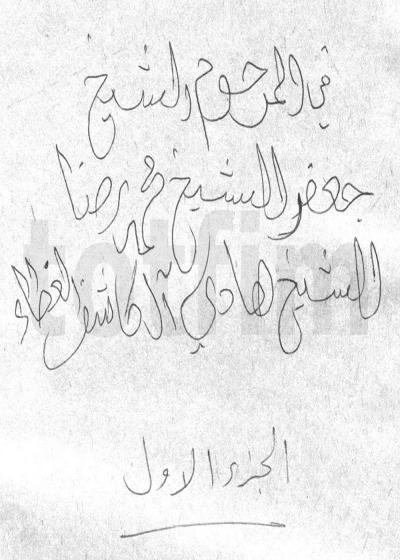 في المرحوم الشيخ
جعفر الشيخ محمد رضا
الشيخ هادي آل كاشف الغطاء
الجزء الاول
totfim